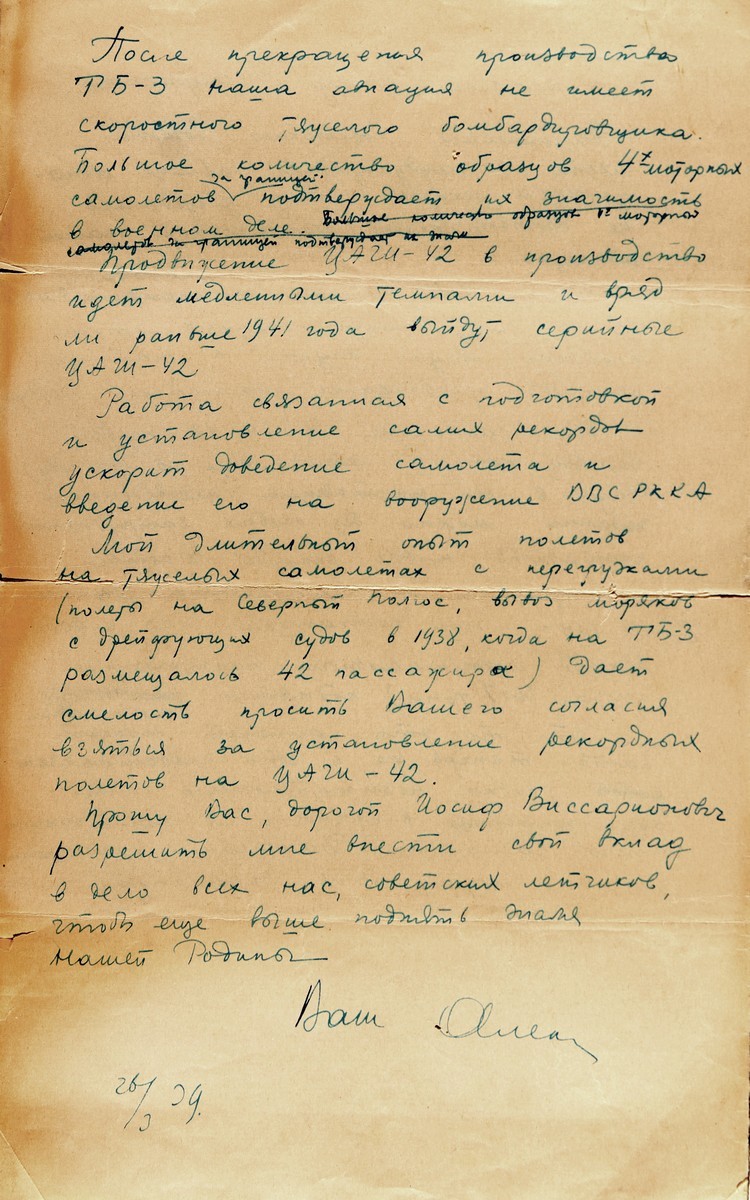 После прекращения производства
ТБ-3 наша авиация не имеет
скоростного тяжелого бомбардировщика.
Большое количество образцов 4х моторных
за границей
самолетов подтверждает их значимость
в военном деле. Большое количество образцов 4х моторных
самолетов за границей подтверждает их знач
Продвижение ЦАГИ-42 в производство
идет медленными темпами и вряд
ли раньше 1941 года выйдут серийные
ЦАГИ-42
Работа связанная с подготовкой
и установление самих рекордов
ускорит доведение самолета и
введение его на вооружение ВВС РККА
Мой длительный опыт полетов
на тяжелых самолетах с перегрузками
(полеты на Северный Полюс, вывоз моряков
с дрейфующих судов в 1938, когда на ТБ-3
размещалось 42 пассажира) дает
смелость просить Вашего согласия
взяться за установление рекордных
полетов на ЦАГИ-42.
Прошу Вас, дорогой Иосиф Виссарионович
разрешить мне внести свой вклад
в дело всех нас, советских летчиков,
чтобы еще выше поднять знамя
нашей Родины
Ваш
26/3 39.